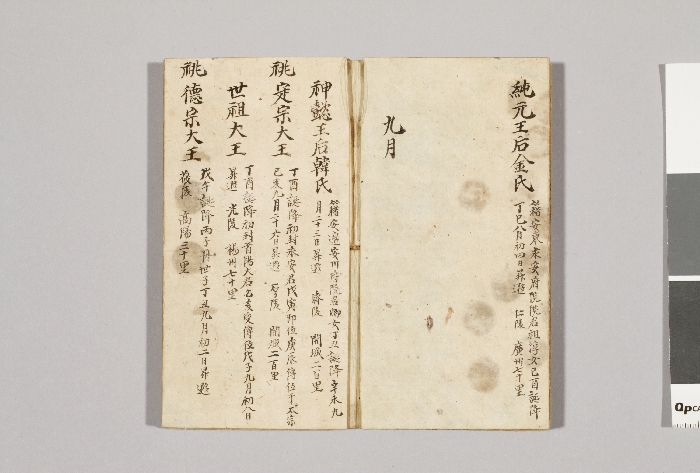 純元王后金氏
籍安東永安府院君祖淳女己酉誕降
丁巳八月初四日昇遐 仁陵 廣州七十里
九月
神懿王后韓氏
籍安邊安川府院君卿女丁丑誕降辛未九
月二十三日昇遐 齊陵 開城二百里
祧定宗大王
丁酉誕降初封永安君戊寅卽位庚辰傳位于太宗
己亥九月二十六日昇遐 厚陵 開城二百里
世祖大王
丁酉誕降初封首陽大君乙亥受傳位戊子九月初八日
昇遐 光陵 楊州七十里
祧德宗大王
戊午誕降 世子丁丑九月初二日昇遐
敬陵 高陽三十里
Qpca